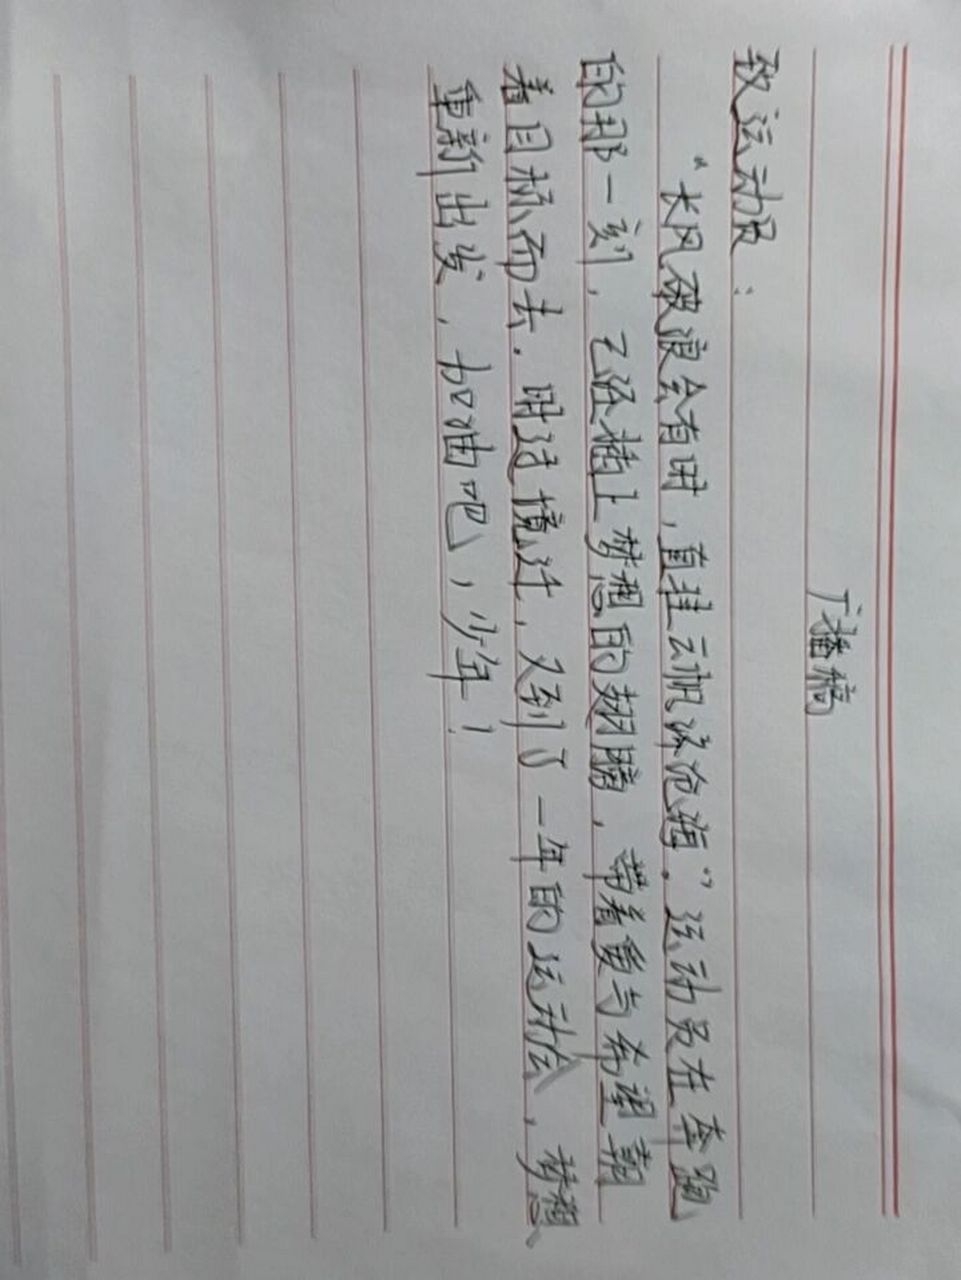 广播稿
致运动员：
“长风破浪会有时，直挂云帆济沧海。”运动员在奔跑
的那一刻，已经插上梦想的翅膀，带着爱与希望朝
着目标而去．时过境迁，又到了一年的运动会，梦想
重新出发，加油吧，少年！